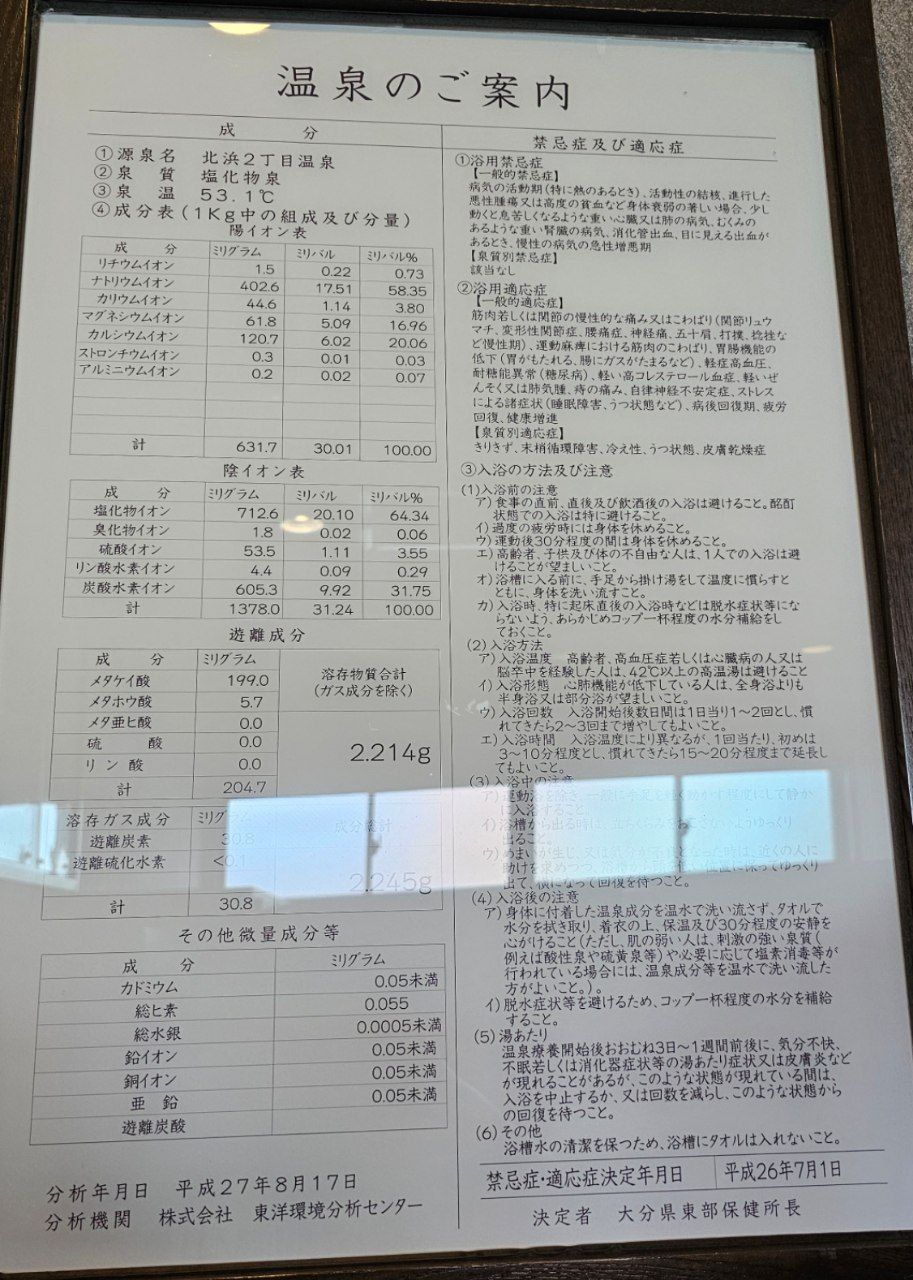 温泉のご案内
成　　分
①源泉名　北浜2丁目温泉
②泉　質　塩化物泉
③泉　温　53.1℃
④成分表(1Kg中の組成及び分量)
陽イオン表
成　分　ミリグラム　ミリバル　ミリバル%
リチウムイオン　1.5　0.22　0.73
ナトリウムイオン　402.6　17.51　58.35
カリウムイオン　44.6　1.14　3.80
マグネシウムイオン　61.8　5.09　16.96
カルシウムイオン　120.7　6.02　20.06
ストロンチウムイオン　0.3　0.01　0.03
アルミニウムイオン　0.2　0.02　0.07
計　631.7　30.01　100.00
陰イオン表
成　分　ミリグラム　ミリバル　ミリバル%
塩化物イオン　712.6　20.10　64.34
臭化物イオン　1.8　0.02　0.06
硫酸イオン　53.5　1.11　3.55
リン酸水素イオン　4.4　0.09　0.29
炭酸水素イオン　605.3　9.92　31.75
計　1378.0　31.24　100.00
遊離成分
成　分　ミリグラム
メタケイ酸　199.0
メタホウ酸　5.7
メタ亜ヒ酸　0.0
硫　酸　0.0
リン酸　0.0
計　204.7
溶存物質合計
(ガス成分を除く)
2.214g
溶存ガス成分　ミリグラム
遊離炭素　30.8
遊離硫化水素　<0.1
計　30.8
成分総計
2.245g
その他微量成分等
成　分　ミリグラム
カドミウム　0.05未満
総ヒ素　0.055
総水銀　0.0005未満
鉛イオン　0.05未満
銅イオン　0.05未満
亜　鉛　0.05未満
遊離炭酸
分析年月日　平成27年8月17日
分析機関　株式会社　東洋環境分析センター
禁忌症及び適応症
①浴用禁忌症
【一般的禁忌症】
病気の活動期(特に熱のあるとき)、活動性の結核、進行した
悪性腫瘍又は高度の貧血など身体衰弱の著しい場合、少し
動くと息苦しくなるような重い心臓又は肺の病気、むくみの
あるような重い腎臓の病気、消化管出血、目に見える出血が
あるとき、慢性の病気の急性増悪期
【泉質別禁忌症】
該当なし
②浴用適応症
【一般的適応症】
筋肉若しくは関節の慢性的な痛み又はこわばり(関節リュウ
マチ、変形性関節症、腰痛症、神経痛、五十肩、打撲、捻挫な
ど慢性期)、運動麻痺における筋肉のこわばり、胃腸機能の
低下(胃がもたれる、腸にガスがたまるなど)、軽症高血圧、
耐糖能異常(糖尿病)、軽い高コレステロール血症、軽いぜ
んそく又は肺気腫、痔の痛み、自律神経不安定症、ストレス
による諸症状(睡眠障害、うつ状態など)、病後回復期、疲労
回復、健康増進
【泉質別適応症】
きりきず、末梢循環障害、冷え性、うつ状態、皮膚乾燥症
③入浴の方法及び注意
(1)入浴前の注意
ア)食事の直前、直後及び飲酒後の入浴は避けること。酩酊
状態での入浴は特に避けること。
イ)過度の疲労時には身体を休めること。
ウ)運動後30分程度の間は身体を休めること。
エ)高齢者、子供及び体の不自由な人は、1人での入浴は避
けることが望ましいこと。
オ)浴槽に入る前に、手足から掛け湯をして温度に慣らすと
ともに、身体を洗い流すこと。
カ)入浴時、特に起床直後の入浴時などは脱水症状等にな
らないよう、あらかじめコップ一杯程度の水分補給をし
ておくこと。
(2)入浴方法
ア)入浴温度　高齢者、高血圧症若しくは心臓病の人又は
脳卒中を経験した人は、42℃以上の高温湯は避けること
イ)入浴形態　心肺機能が低下している人は、全身浴よりも
半身浴又は部分浴が望ましいこと。
ウ)入浴回数　入浴開始後数日間は1日当り1〜2回とし、慣
れてきたら2〜3回まで増やしてもよいこと。
エ)入浴時間　入浴温度により異なるが、1回当たり、初めは
3〜10分程度とし、慣れてきたら15〜20分程度まで延長し
てもよいこと。
(3)入浴中の注意
ア)運動浴を除き、一般に手足を軽く動かす程度にして静か
に入浴すること。
イ)浴槽から出る時は、立ちくらみを起こさないようゆっくり
出ること。
ウ)めまいが生じ、又は気分が不良となった時は、近くの人に
助けを求め
位置に保ってゆっくり
出て、横になって回復を待つこと。
(4)入浴後の注意
ア)身体に付着した温泉成分を温水で洗い流さず、タオルで
水分を拭き取り、着衣の上、保温及び30分程度の安静を
心がけること(ただし、肌の弱い人は、刺激の強い泉質(
例えば酸性泉や硫黄泉等)や必要に応じて塩素消毒等が
行われている場合には、温泉成分等を温水で洗い流した
方がよいこと。)。
イ)脱水症状等を避けるため、コップ一杯程度の水分を補給
すること。
(5)湯あたり
温泉療養開始後おおむね3日〜1週間前後に、気分不快、
不眠若しくは消化器症状等の湯あたり症状又は皮膚炎など
が現れることがあるが、このような状態が現れている間は、
入浴を中止するか、又は回数を減らし、このような状態から
の回復を待つこと。
(6)その他
浴槽水の清潔を保つため、浴槽にタオルは入れないこと。
禁忌症・適応症決定年月日　平成26年7月1日
決定者　大分県東部保健所長